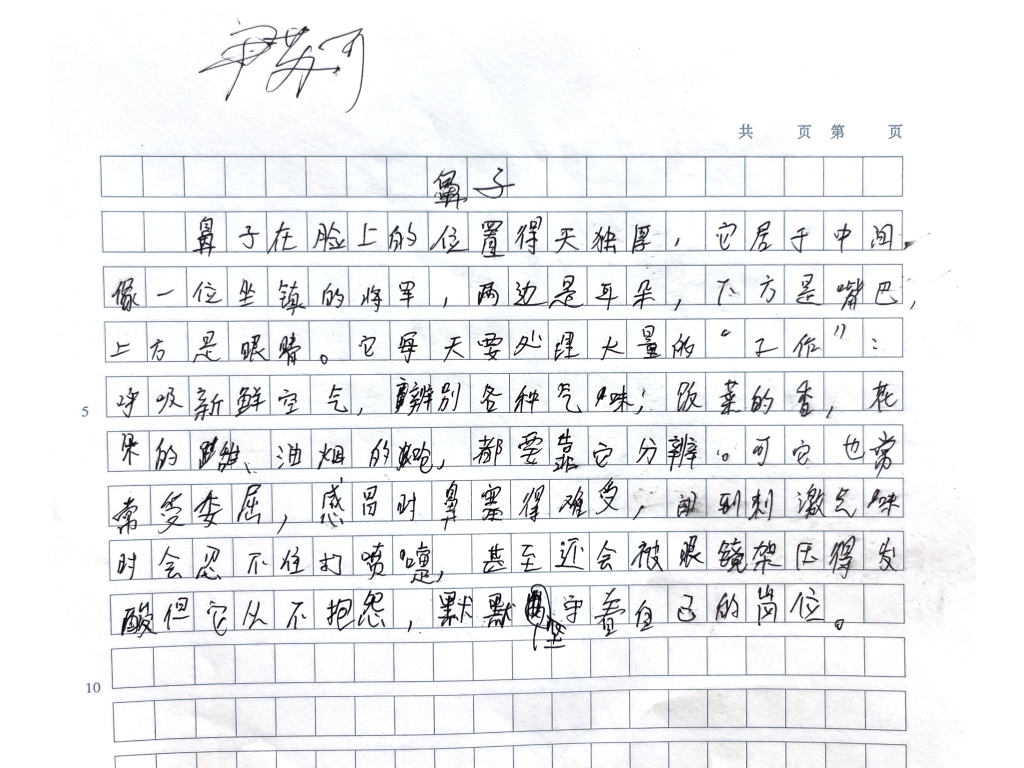 共 页 第 页
鼻子
鼻子在脸上的位置得天独厚，它居于中间，
像一位坐镇的将军，两边是耳朵，下方是嘴巴，
上方是眼睛。它每天要处理大量的“工作”：
5 呼吸新鲜空气，辨别各种气味；饭菜的香，花
果的 油烟的 都要靠它分辨。可它也常
常受委屈，感冒时鼻塞得难受，闻到刺激气味
时会忍不住打喷嚏，甚至还会被眼镜架压得发
酸但它从不抱怨，默默坚守着自己的岗位。
10